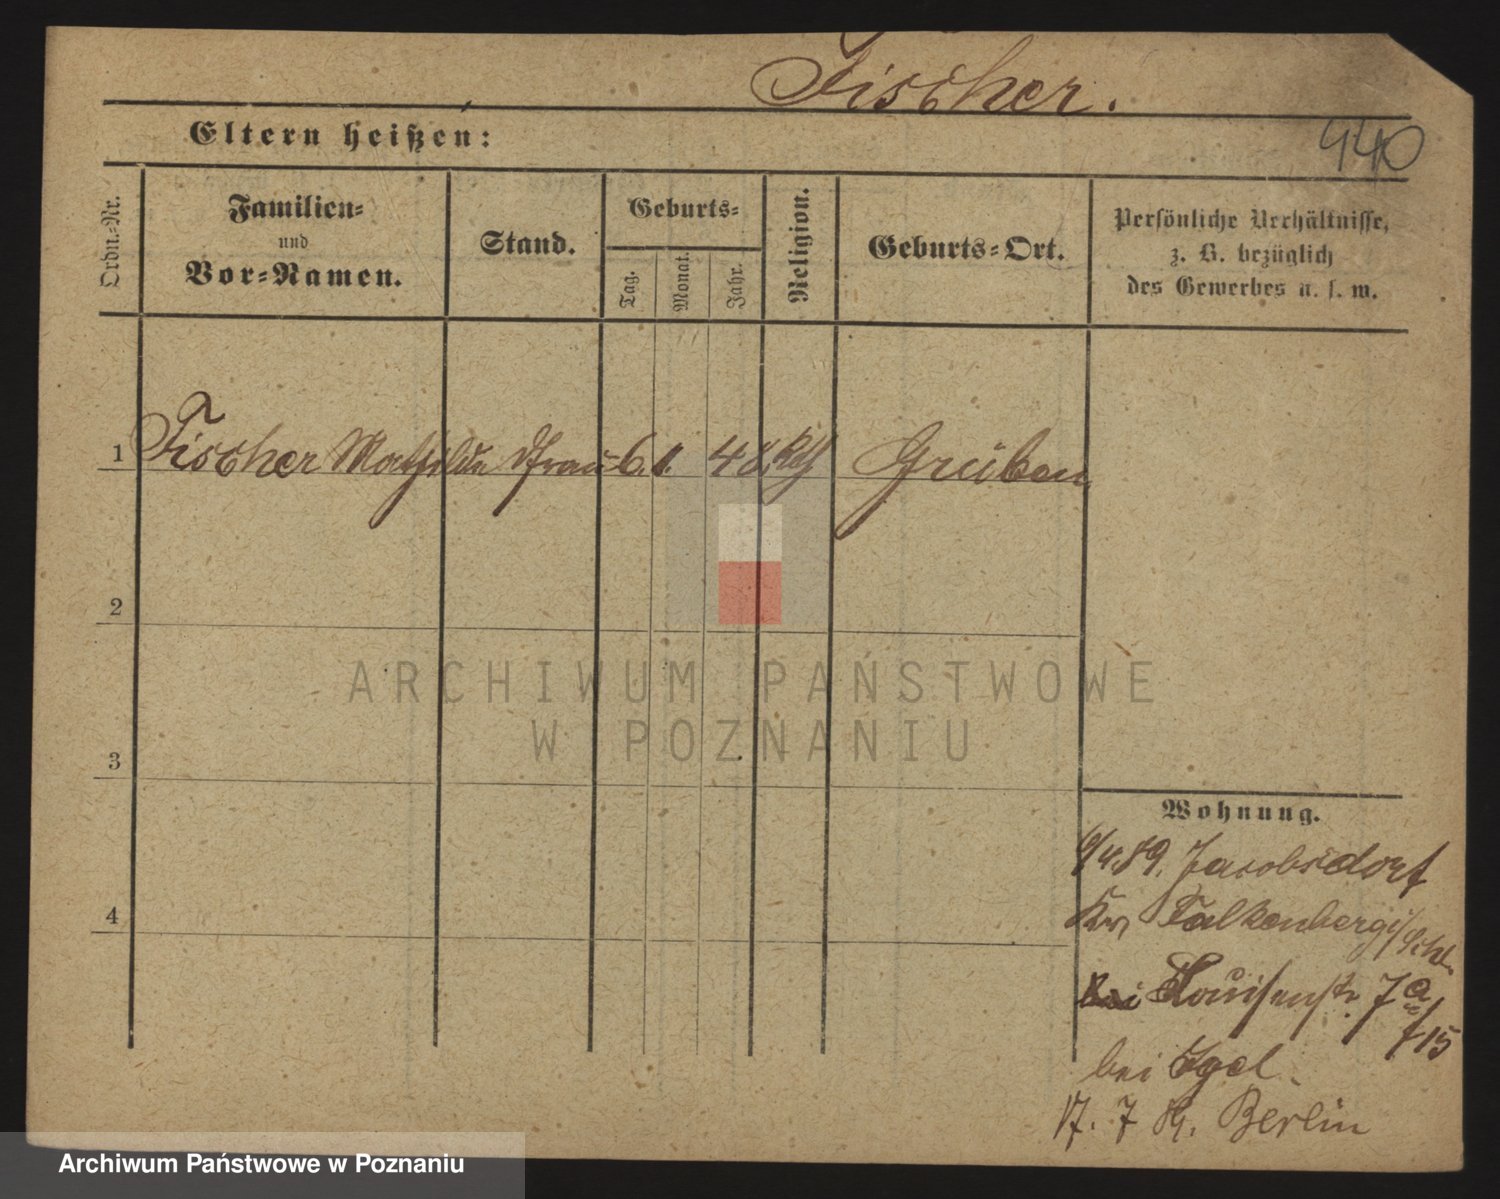 Fischer.
440
Eltern heißen:
Ordn.-Nr.
Familien-
und
Vor-Namen.
Stand.
Geburts-
Tag.
Monat.
Jahr.
Religion.
Geburts-Ort.
Persönliche Verhältnisse,
z. B. bezüglich
des Gewerbes u. s. w.
1 Fischer Mathilde Frau 6. 48. kth Grüben
2
3
4
ARCHIWUM PAŃSTWOWE
W POZNANIU
Wohnung.
89. Jacobsdorf
Falkenberg i/Schl.
bei Louisenstr. 7a
/15
bei Igel.
17. 7 Berlin
Archiwum Państwowe w Poznaniu